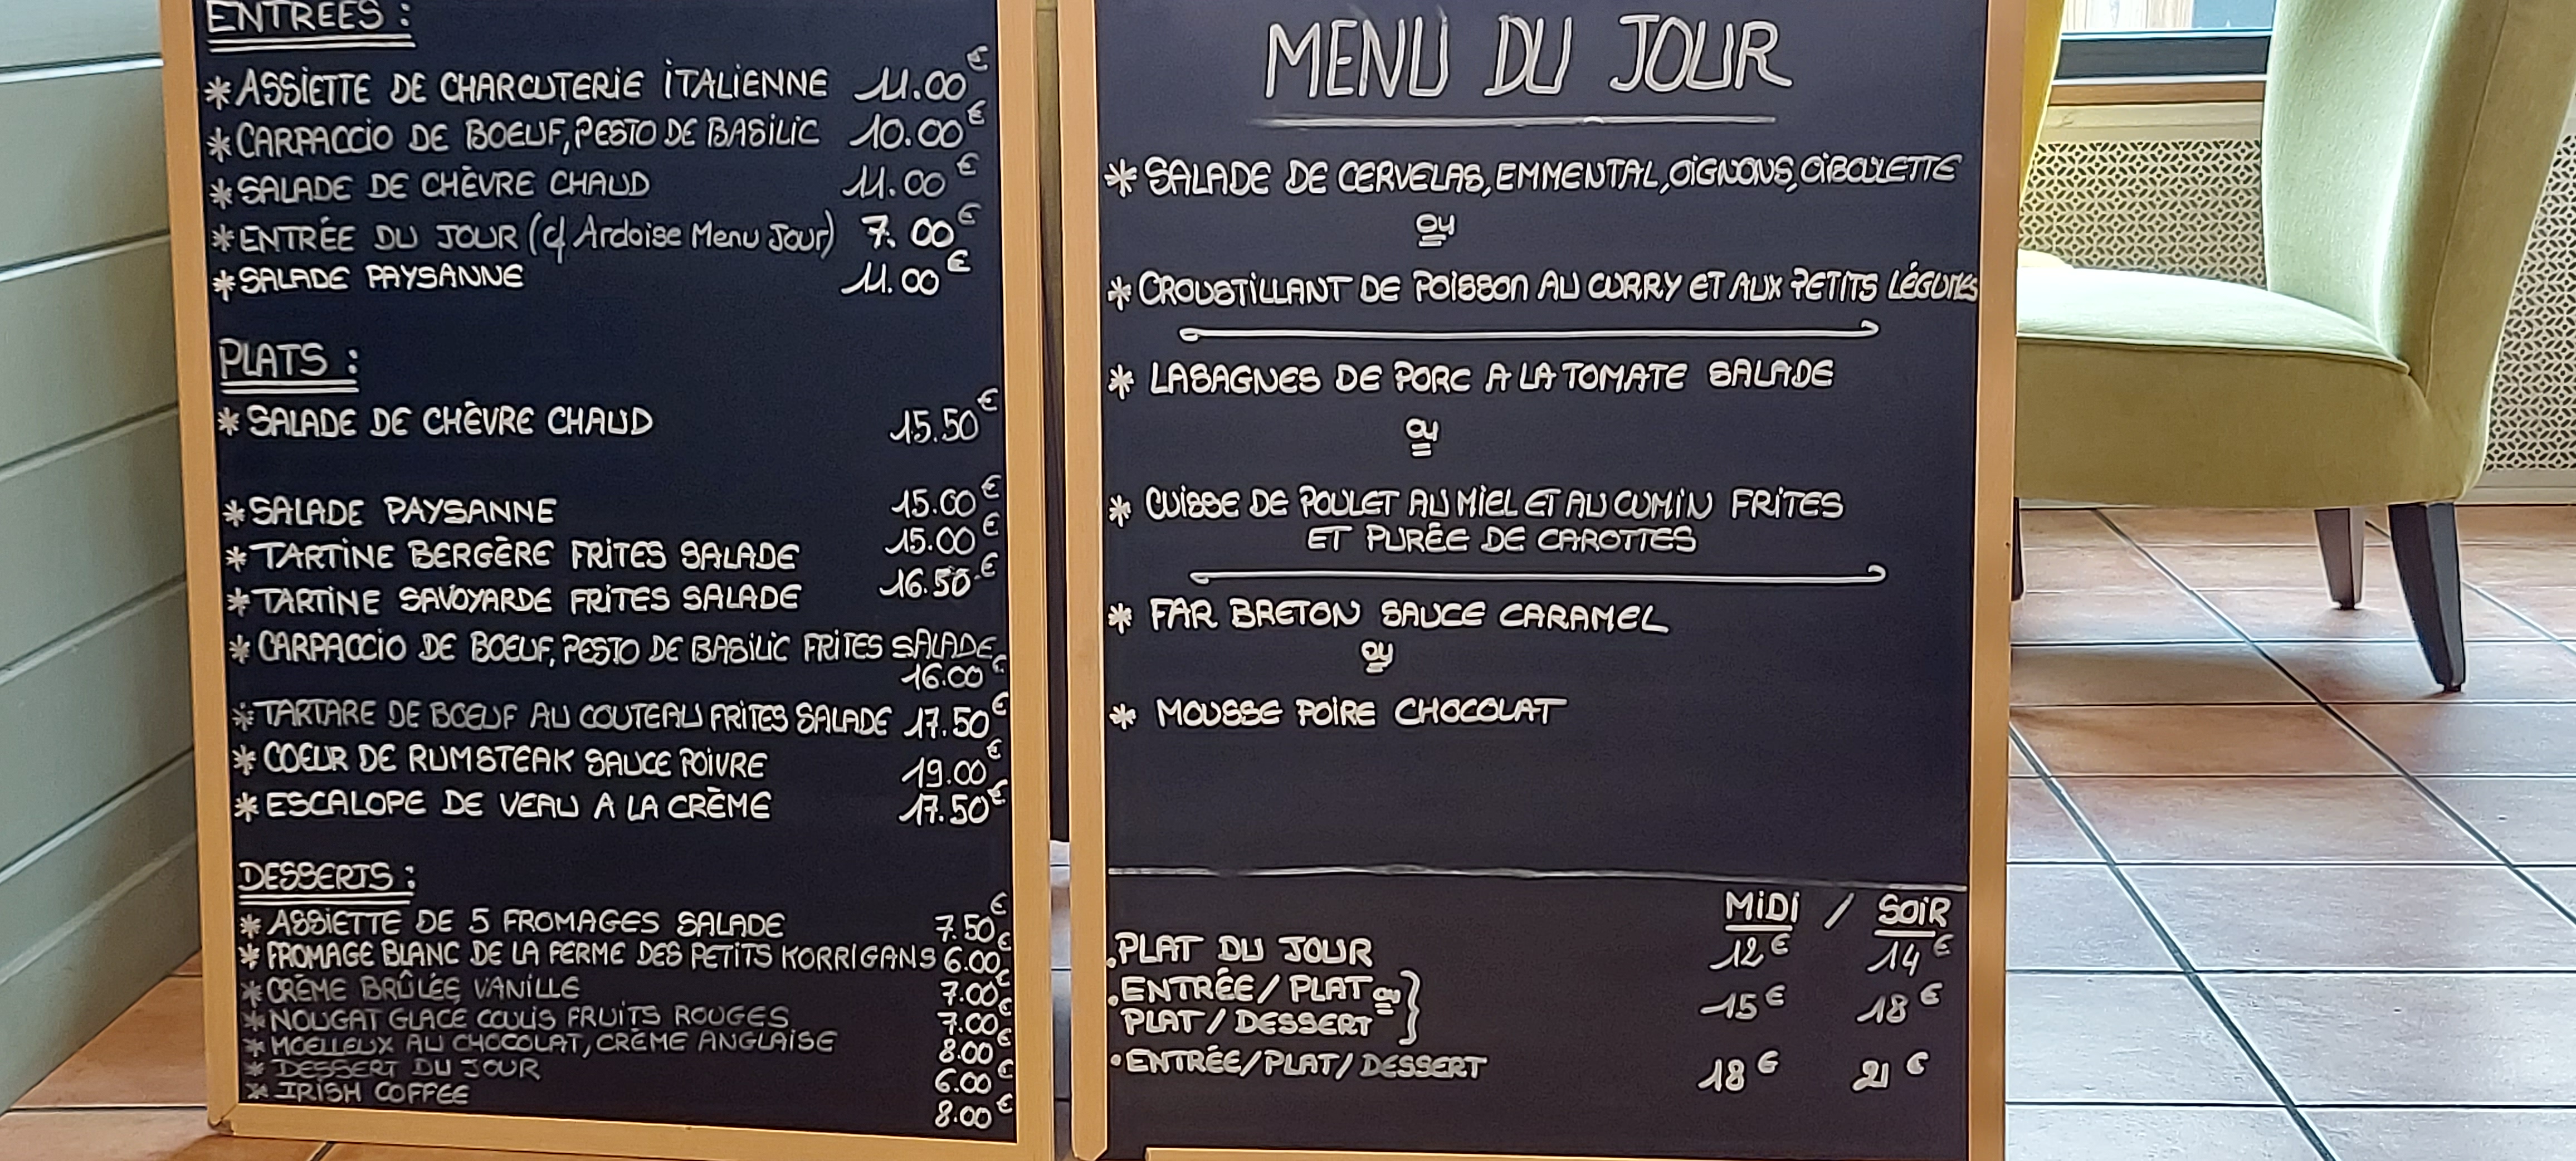 ENTRÉES :
* ASSIETTE DE CHARCUTERIE ITALIENNE 11.00€
* CARPACCIO DE BOEUF, PESTO DE BASILIC 10.00€
* SALADE DE CHÈVRE CHAUD 11.00€
* ENTRÉE DU JOUR (cf Ardoise Menu Jour) 7.00€
* SALADE PAYSANNE 11.00€
PLATS :
* SALADE DE CHÈVRE CHAUD 15.50€
* SALADE PAYSANNE 15.00€
* TARTINE BERGÈRE FRITES SALADE 15.00€
* TARTINE SAVOYARDE FRITES SALADE 16.50€
* CARPACCIO DE BOEUF, PESTO DE BASILIC FRITES SALADE
16.00€
* TARTARE DE BOEUF AU COUTEAU FRITES SALADE 17.50€
* COEUR DE RUMSTEAK SAUCE POIVRE 19.00€
* ESCALOPE DE VEAU A LA CRÈME 17.50€
DESSERTS :
* ASSIETTE DE 5 FROMAGES SALADE 7.50€
* FROMAGE BLANC DE LA FERME DES PETITS KORRIGANS 6.00€
* CRÈME BRÛLÉE VANILLE 7.00€
* NOUGAT GLACE COULIS FRUITS ROUGES 7.00€
* MOELLEUX AU CHOCOLAT, CRÈME ANGLAISE 8.00€
* DESSERT DU JOUR 6.00€
* IRISH COFFEE 8.00€
MENU DU JOUR
* SALADE DE CERVELAS, EMMENTAL, OIGNONS, CIBOULETTE
ou
* CROUSTILLANT DE POISSON AU CURRY ET AUX PETITS LÉGUMES
* LASAGNES DE PORC A LA TOMATE SALADE
ou
* CUISSE DE POULET AU MIEL ET AU CUMIN FRITES
ET PURÉE DE CAROTTES
* FAR BRETON SAUCE CARAMEL
ou
* MOUSSE POIRE CHOCOLAT
MIDI / SOIR
. PLAT DU JOUR 12€ 14€
. ENTRÉE / PLAT ou } 15€ 18€
PLAT / DESSERT
. ENTRÉE/PLAT/DESSERT 18€ 21€